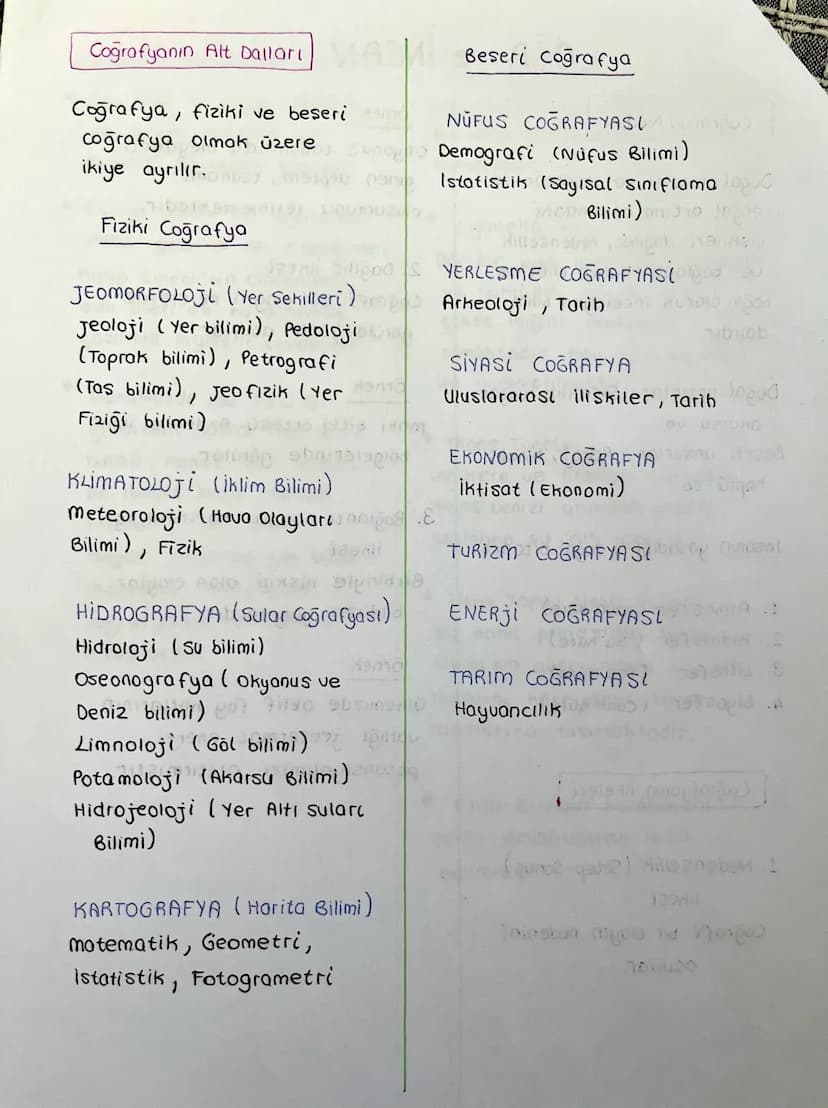 Coğrafyanın Alt Dalları
Coğrafya, fiziki ve beseri
coğrafya olmak üzere
ikiye ayrılır.
Fiziki Coğrafya
JEOMORFOLOJİ (Yer Sekilleri)
Jeoloji (Yer bilimi), Pedoloji
(Toprak bilimi), Petrografi
(Tas bilimi), Jeofizik (Yer
Fiziği bilimi)
KLİMATOLOJİ (İklim Bilimi)
Meteoroloji (Hava Olayları
Bilimi), Fizik
HİDROGRAFYA (Sular Coğrafyası)
Hidroloji (Su bilimi)
Oseonografya (Okyanus ve
Deniz bilimi)
Limnoloji (Göl bilimi)
Potamoloji (Akarsu Bilimi)
Hidrojeoloji (Yer Altı Suları
Bilimi)
KARTOGRAFYA (Harita Bilimi)
matematik, Geometri,
İstatistik, Fotogrametri
Beseri Coğrafya
NÜFUS COĞRAFYASI
Demografi (Nüfus Bilimi)
İstatistik (Sayısal sınıflama
Bilimi)
YERLESME COĞRAFYASI
Arkeoloji, Tarih
SİYASİ COĞRAFYA
Uluslararası iliskiler, Tarih
EKONOMİK COĞRAFYA
İktisat (Ekonomi)
TURİZM COĞRAFYASI
ENERJİ COĞRAFYASI
TARIM COĞRAFYASI
Hayvancılık